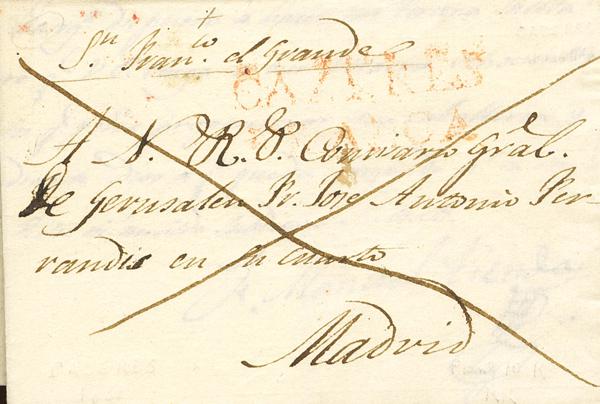 Sn. Franco. el Grande
CAZERES
FRANCA
A N. R. P. Comisario Gral.
De Jerusalen Fr. Jose Antonio Fer-
randis en su cuarto
Madrid